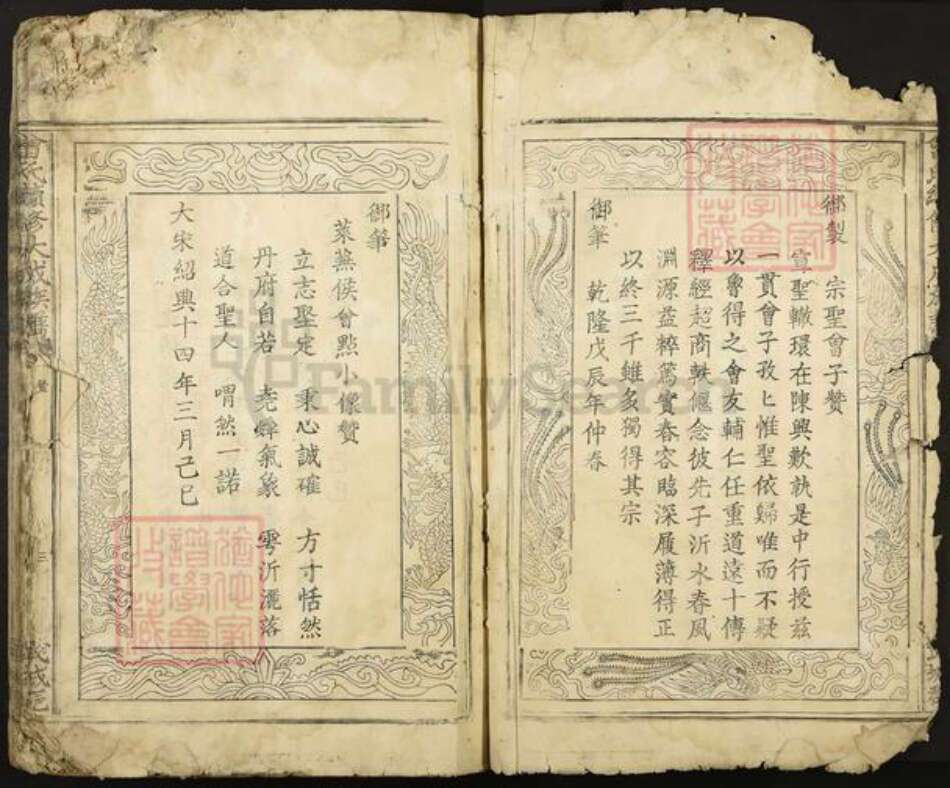 御製
宗聖會子贊
宣聖轍環在陳興歎孰是中行授兹
一貫會子孜匕惟聖依歸唯而不疑
以魯得之會友輔仁任重道遠十傳
釋經超商軼偃念彼先子沂水春風
淵源益粹篤實春容臨深履薄得正
以終三千雖多獨得其宗
御筆 乾隆戊辰年仲春
御筆
萊蕪侯會點小像贊
立志堅定 秉心誠確 方寸恬然
丹府自若 堯舜氣象 雩沂灑落
道合聖人 喟然一諾
大宋紹興十四年三月己巳
氏續修大成族譜
FamilySearch